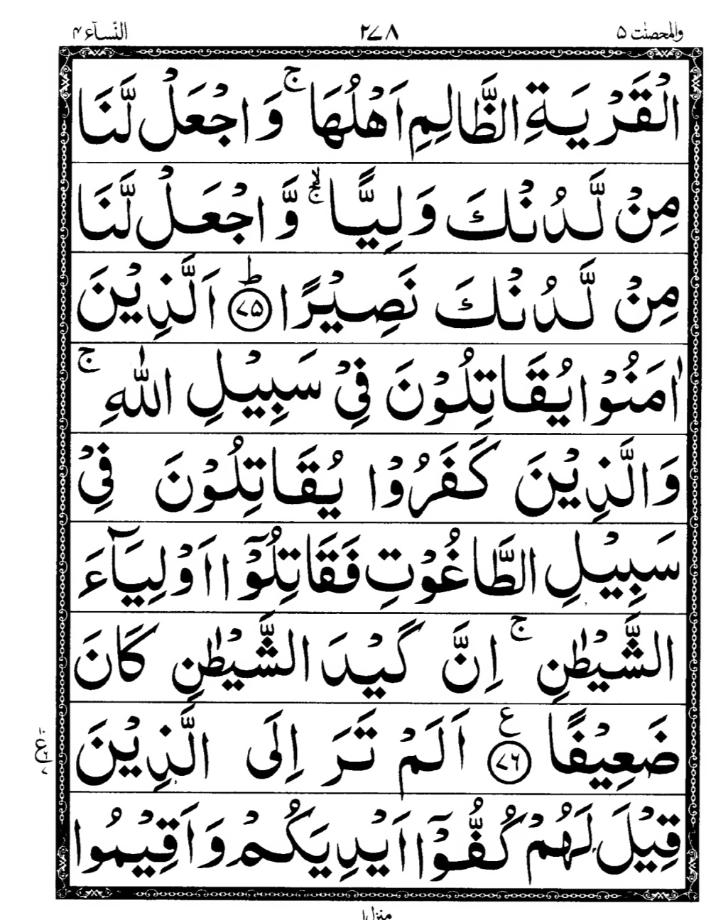 والمحصنٰت ۵ ۲۷۸ النّسآء ۴
الْقَرْيَةِ الظَّالِمِ اَهْلُهَا ۚ وَ اجْعَلْ لَّنَا
مِنْ لَّدُنْكَ وَلِيًّا ۙۚ وَّ اجْعَلْ لَّنَا
مِنْ لَّدُنْكَ نَصِيْرًا ؕ۷۵ اَلَّذِيْنَ
اٰمَنُوْا يُقَاتِلُوْنَ فِيْ سَبِيْلِ اللّٰهِ ۚ
وَالَّذِيْنَ كَفَرُوْا يُقَاتِلُوْنَ فِيْ
سَبِيْلِ الطَّاغُوْتِ فَقَاتِلُوْۤا اَوْلِيَآءَ
الشَّيْطٰنِ ۚ اِنَّ كَيْدَ الشَّيْطٰنِ كَانَ
ضَعِيْفًا ۷۶ ع اَلَمْ تَرَ اِلَى الَّذِيْنَ
قِيْلَ لَهُمْ كُفُّوْۤا اَيْدِيَكُمْ وَاَقِيْمُوا
منزل ۱